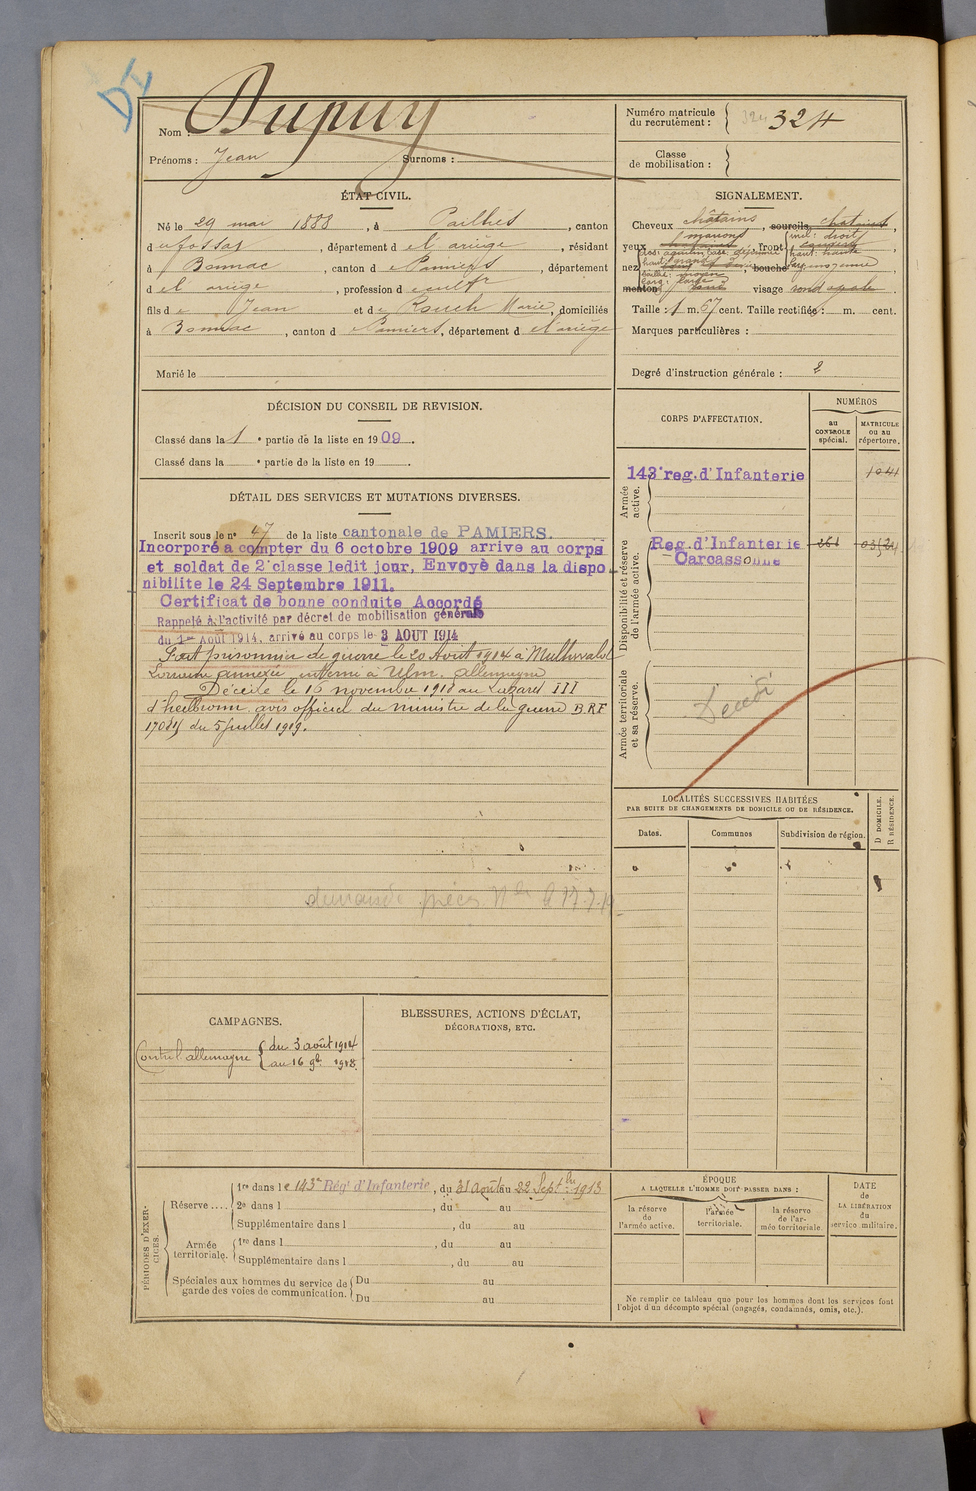 DI
Nom : Dupuy
Prénoms : Jean Surnoms :
Numéro matricule du recrutement : 324 324
Classe de mobilisation :
ÉTAT CIVIL.
Né le 29 mai 1888, à Pailhès, canton
du fossat, département de l'ariège, résidant
à Bonnac, canton de Pamiers, département
de l'ariège, profession de cultr
fils de Jean et de Rouch Marie, domiciliés
à Bonnac, canton de Pamiers, département de l'ariège
Marié le
SIGNALEMENT.
Cheveux châtains, sourcils châtains,
yeux marrons, front incl: droit
haut: haute
larg: moyenne
nez dos: aquilin base: abaissée
haut: grande
saillie: moyen
larg: large
bouche
menton rond visage rond ovale
Taille : 1 m. 67 cent. Taille rectifiée : m. cent.
Marques particulières :
Degré d'instruction générale : 2
DÉCISION DU CONSEIL DE REVISION.
Classé dans la 1e partie de la liste en 1909.
Classé dans la e partie de la liste en 19 .
CORPS D'AFFECTATION.
NUMÉROS
au CONTROLE spécial.
MATRICULE ou au répertoire.
Armée active.
143e reg. d'Infanterie 1041
Disponibilité et réserve de l'armée active.
Reg. d'Infanterie
Carcassonne
Armée territoriale et sa réserve.
Décédé
DÉTAIL DES SERVICES ET MUTATIONS DIVERSES.
Inscrit sous le n° 47 de la liste cantonale de PAMIERS.
Incorporé a compter du 6 octobre 1909 arrive au corps
et soldat de 2e classe ledit jour. Envoyé dans la dispo
nibilite le 24 Septembre 1911.
Certificat de bonne conduite Accordé
Rappelé à l'activité par décret de mobilisation générale
du 1er Août 1914, arrivé au corps le 3 AOUT 1914
Fait prisonnier de guerre le 20 Août 1914 à Mulhwald
Lorraine annexée interné à Ulm. Allemagne
Décédé le 16 novembre 1918 au Lazaret III
d'heilbronn avis officiel du ministre de la guerre B.R.F
du 5 Juillet 1919.
demandé pièces le 17.7.19
LOCALITÉS SUCCESSIVES HABITÉES
PAR SUITE DE CHANGEMENTS DE DOMICILE OU DE RÉSIDENCE.
Dates. Communes Subdivision de région.
D DOMICILE.
R RÉSIDENCE.
CAMPAGNES.
Contre l'allemagne du 3 août 1914
au 16 9bre 1918.
BLESSURES, ACTIONS D'ÉCLAT,
DÉCORATIONS, ETC.
PÉRIODES D'EXERCICES.
Réserve ....
1re dans le 143me Régt d'Infanterie, du 31 Août au 22 Septbre 1913
2e dans l , du au
Supplémentaire dans l , du au
Armée territoriale.
1re dans l , du au
Supplémentaire dans l , du au
Spéciales aux hommes du service de garde des voies de communication.
Du au
Du au
ÉPOQUE
A LAQUELLE L'HOMME DOIT PASSER DANS :
la réserve de l'armée active.
l'armée territoriale.
la réserve de l'armée territoriale.
DATE
de
LA LIBÉRATION
du
service militaire.
Ne remplir ce tableau que pour les hommes dont les services font
l'objet d'un décompte spécial (engagés, condamnés, omis, etc.).